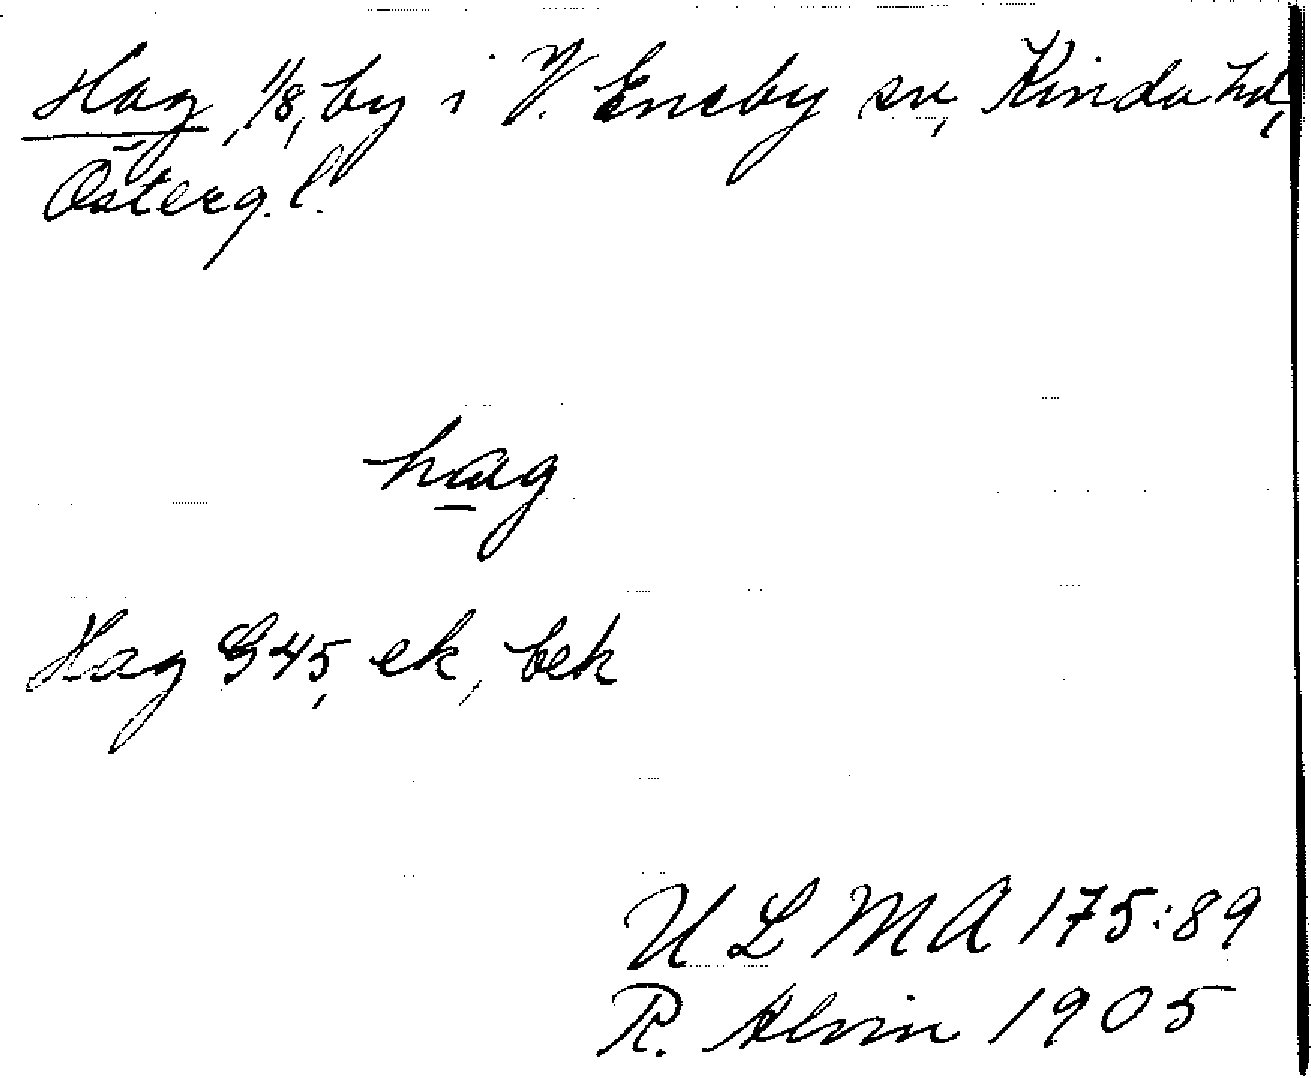 Hag 1/8, by i V. Eneby sn, Kinda hd,
Österg. l.
hag
Hag G45, ek, bek
U L M A 175:89
R. Alvin 1905